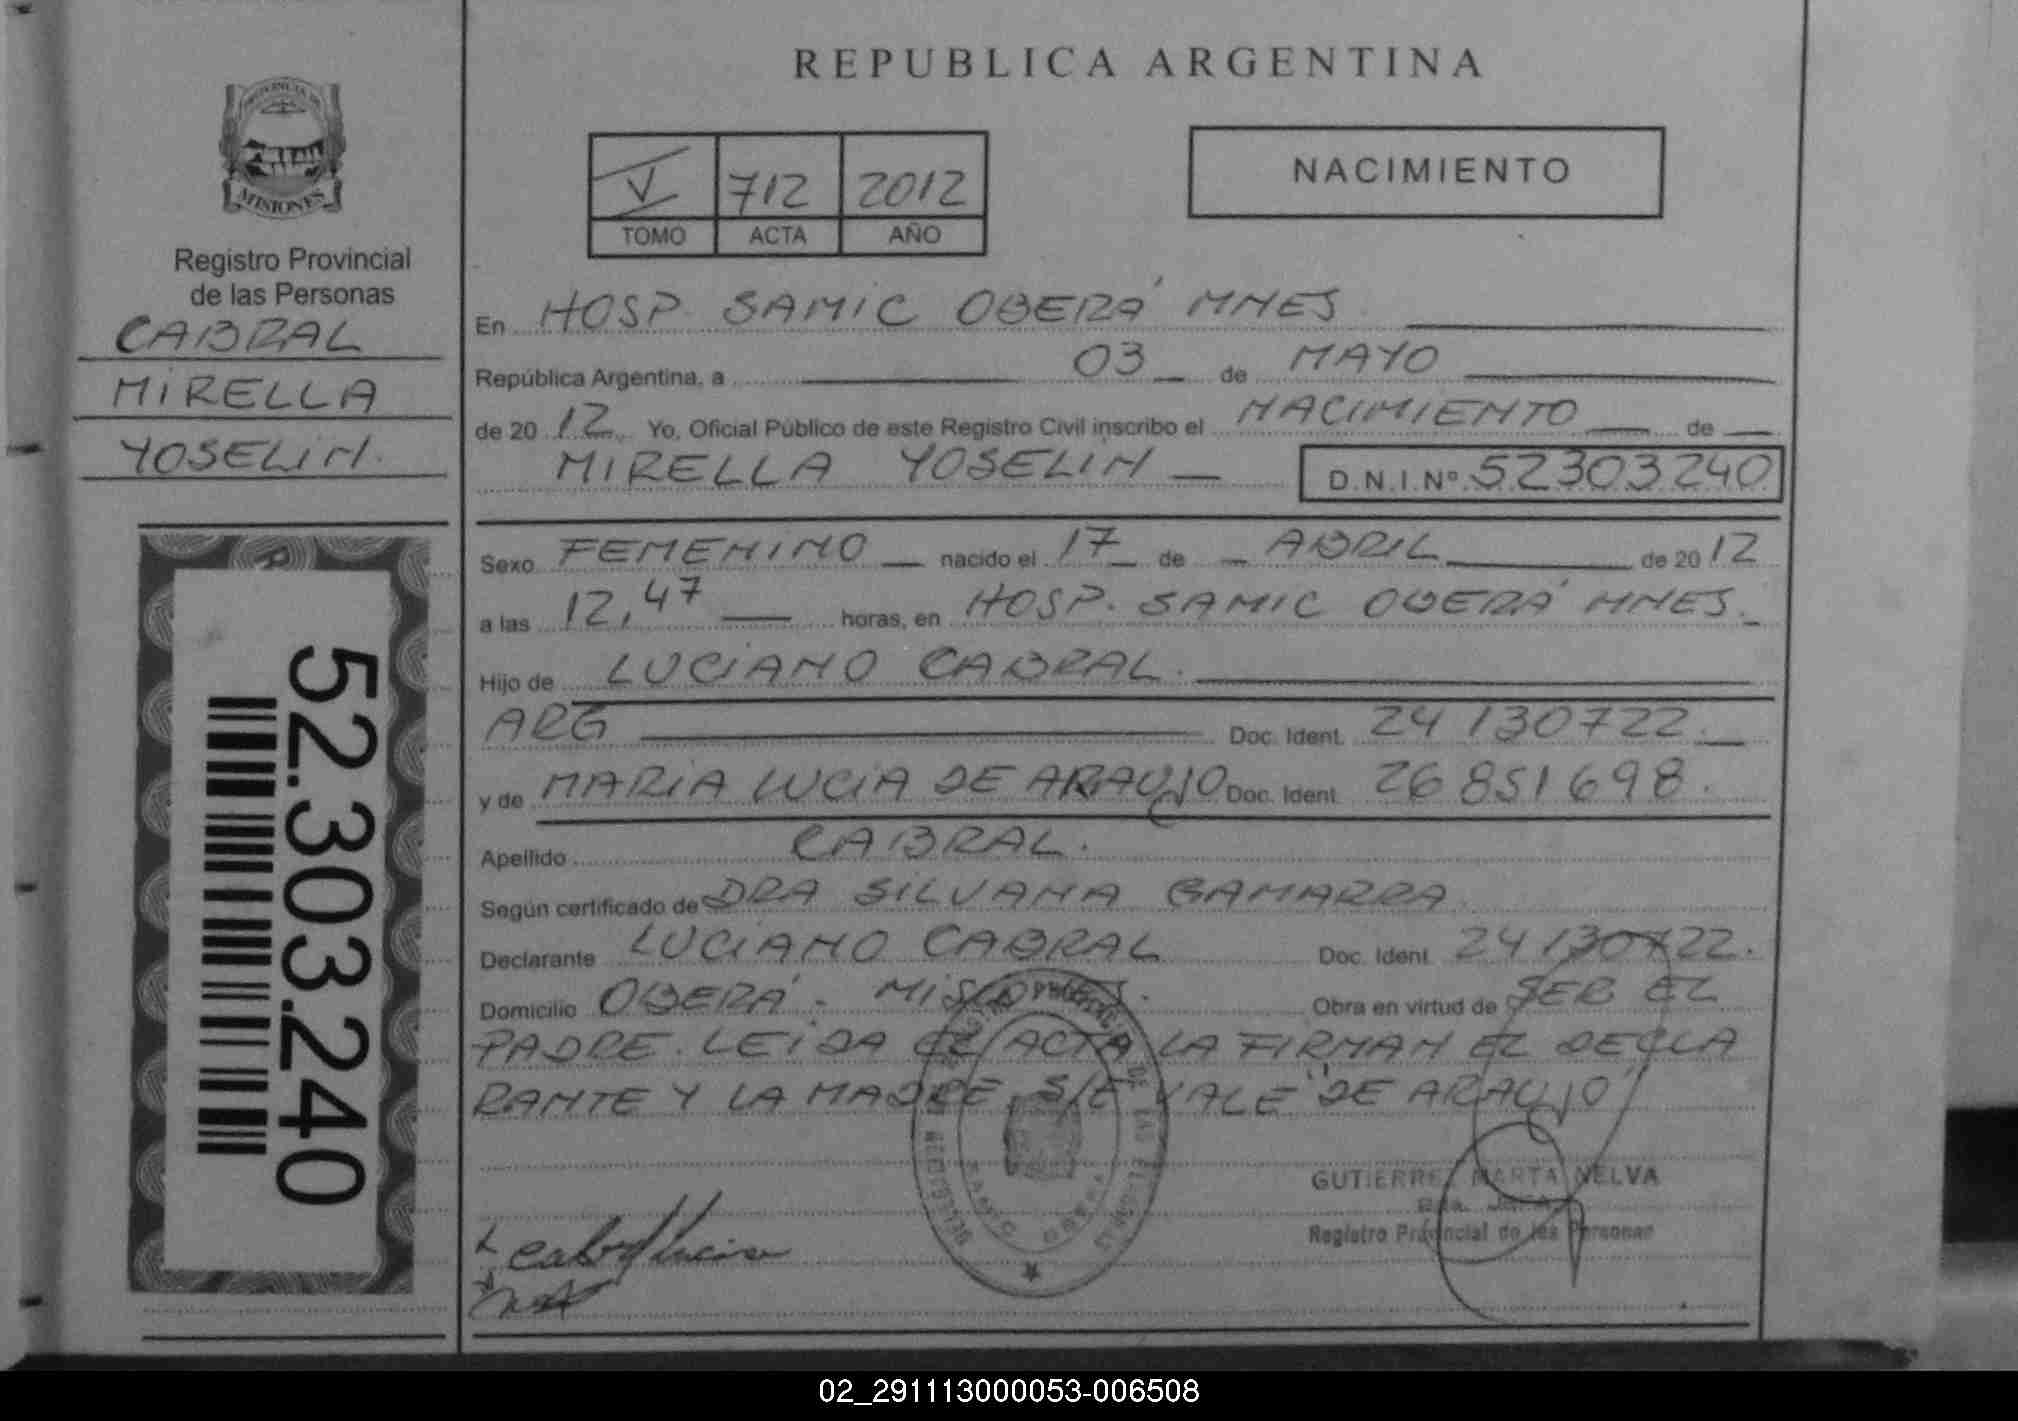 REPUBLICA ARGENTINA
PROVINCIA DE
MISIONES
Registro Provincial
de las Personas
CABRAL
MIRELLA
YOSELIN.
52.303.240
V 712 2012
TOMO ACTA AÑO
NACIMIENTO
En HOSP. SAMIC OBERÁ MNES
República Argentina, a 03 de MAYO
de 2012 Yo, Oficial Público de este Registro Civil inscribo el NACIMIENTO de
MIRELLA YOSELIN D.N.I.Nº 52303240
Sexo FEMENINO nacido el 17 de ABRIL de 2012
a las 12,47 horas, en HOSP. SAMIC OBERÁ MNES.
Hijo de LUCIANO CABRAL.
ARG Doc. Ident. 24130722.
y de MARIA LUCIA DE ARAUJO Doc. Ident. 26851698.
Apellido CABRAL.
Según certificado de DRA SILVANA GAMARRA
Declarante LUCIANO CABRAL Doc. Ident. 24130722.
Domicilio OBERÁ - MISIONES. Obra en virtud de SER EL
PADRE. LEIDA EL ACTA LA FIRMAN EL DECLA
RANTE Y LA MADRE. S/E VALE "DE ARAUJO"
GUTIERREZ MARTA NELVA
Registro Provincial de las Personas
Cabral Luciano
02_291113000053-006508